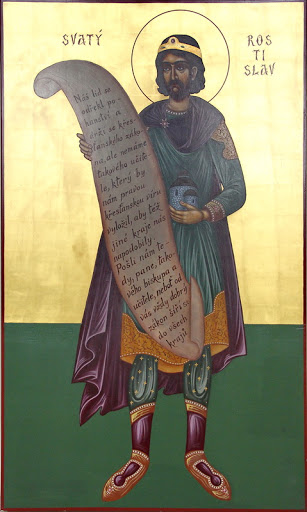 SVATÝ
ROS
TI
SLAV
Náš lid se
odřekl po-
hanství a
drží se křes-
ťanského záko-
na, ale nemáme
takového učite-
le, který by
nám pravou
křesťanskou víru
vyložil, aby též
jiné kraje nás
napodobily.
Pošli nám te-
dy, pane, tako-
vého biskupa a
učitele, neboť od
vás vždy dobrý
zákon šíří se
do všech
krajů.